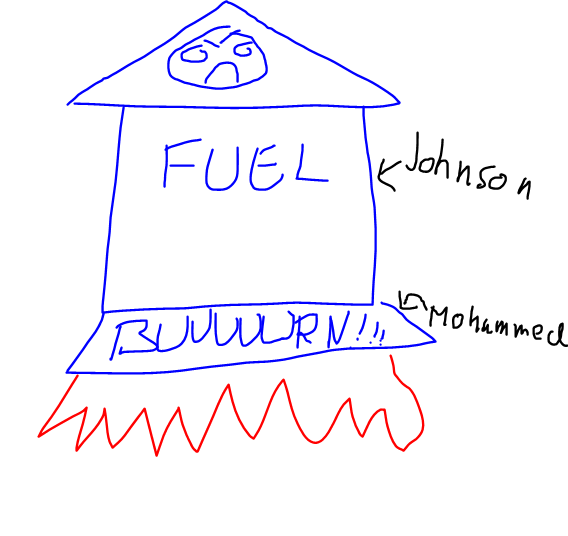 FUEL
Johnson
BUUUURN!!!
Mohammed